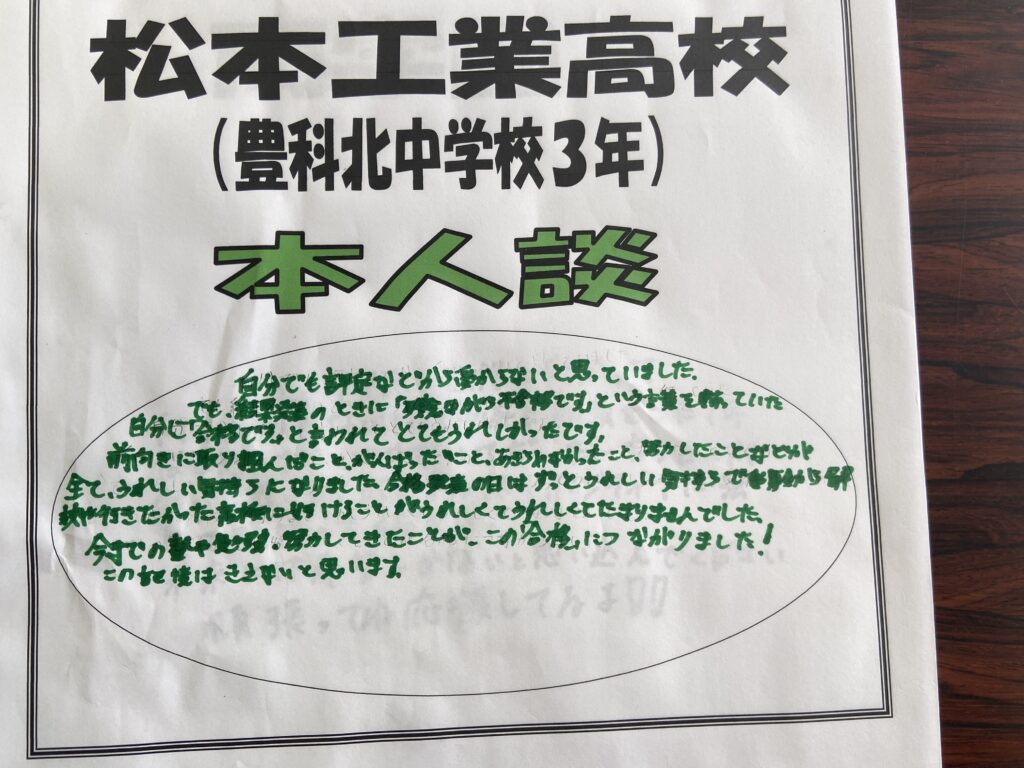 松本工業高校
(豊科北中学校3年)
本人談
自分でも評定などから受からないと思っていました。
でも、発表のときに「残念ながら不合格です」という言葉を
自分に「合格です。」と言われてとてもうれしかったです。
前向きに取り組んだこと、がんばったこと、あきらめなかったこと、努力したことなどが
全て、うれしい気持ちになりました。合格発表の日はずっとうれしい気持ちで
行きたかった高校に行けることがうれしくてうれしくてたまりませんでした。
今までの努力してきたことが、この「合格」につながりました!
この忘れないと思います。